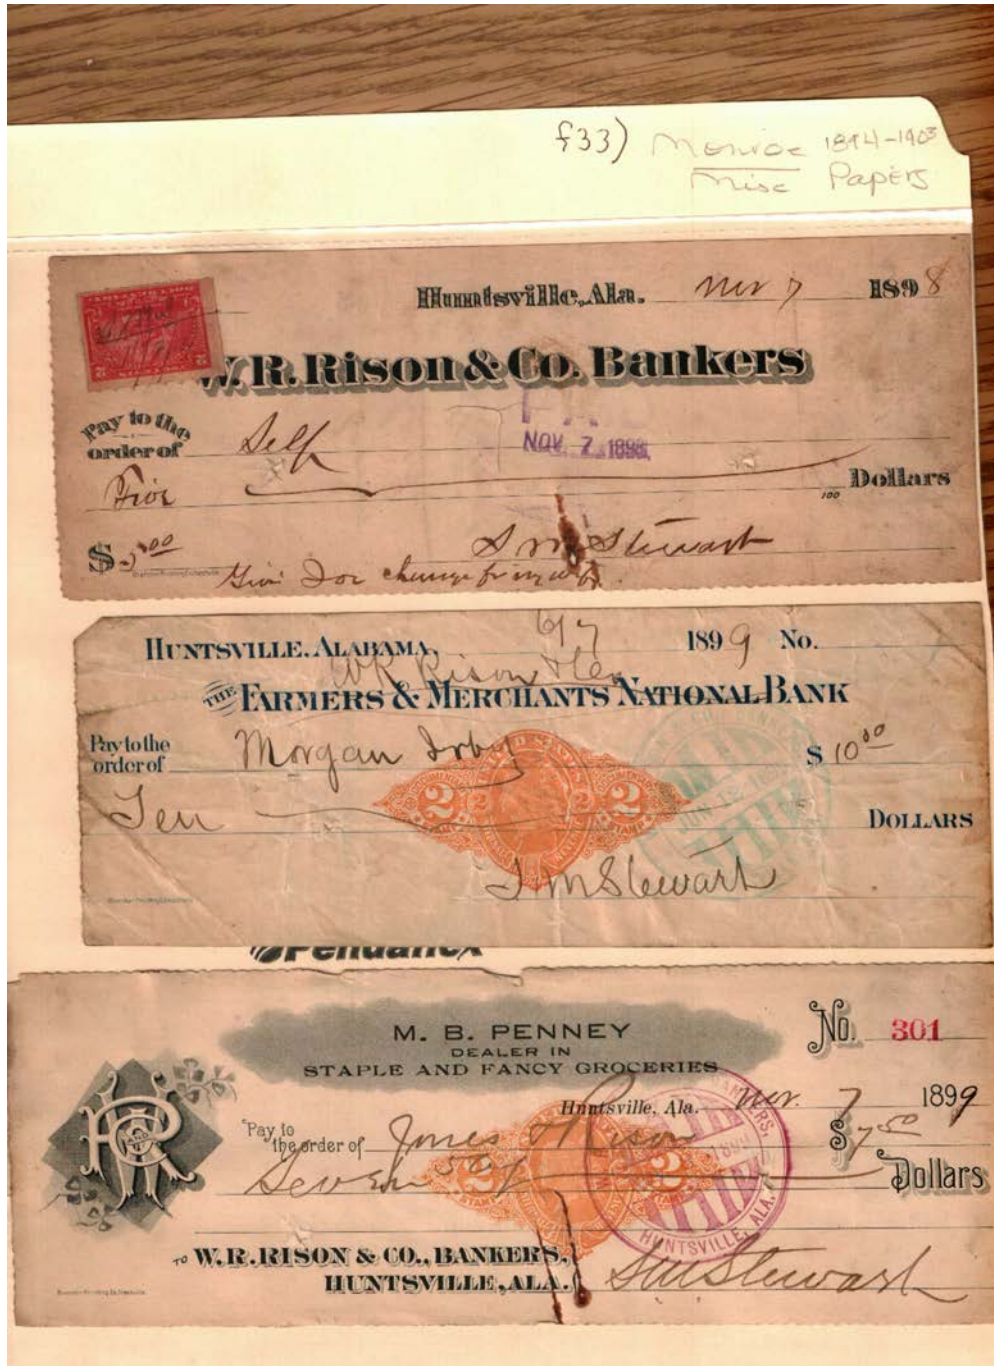 f33) Monroe 1894-1903
Misc Papers
Huntsville, Ala. Nov 7 1898
W.R. Rison & Co. Bankers
Pay to the
order of Self
NOV. 7 1898
Five 100 Dollars
$5.00 S M Stewart
Give Joe change for my
HUNTSVILLE, ALABAMA, 6/7 1899 No.
W R Rison & Co
THE FARMERS & MERCHANTS NATIONAL BANK
Pay to the
order of Morgan Irby $ 10 00
2 2 2 2
Ten DOLLARS
S M Stewart
Pendaflex
M. B. PENNEY
No. 301
DEALER IN
STAPLE AND FANCY GROCERIES
Huntsville, Ala. Nov. 7 1899
Pay to
the order of Jones & Rison $ 7 50
Seven 50/ Dollars
2 2
HUNTSVILLE, ALA.
TO W.R. RISON & CO., BANKERS,
HUNTSVILLE, ALA. S M Stewart